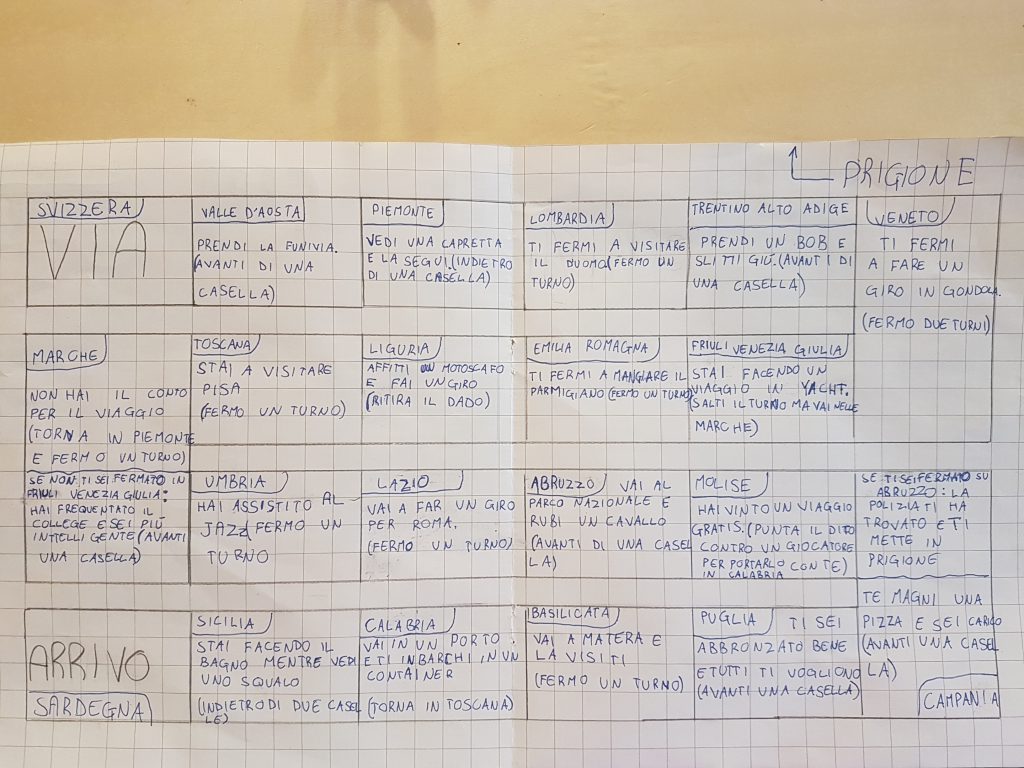 PRIGIONE
SVIZZERA
VIA
VALLE D'AOSTA
PRENDI LA FUNIVIA.
(AVANTI DI UNA
CASELLA)
PIEMONTE
VEDI UNA CAPRETTA
E LA SEGUI.(INDIETRO
DI UNA CASELLA)
LOMBARDIA
TI FERMI A VISITARE
IL DUOMO(FERMO UN
TURNO)
TRENTINO ALTO ADIGE
PRENDI UN BOB E
SLITTI GIÙ.(AVANTI DI
UNA CASELLA)
VENETO
TI FERMI
A FARE UN
GIRO IN GONDOLA.
(FERMO DUE TURNI)
MARCHE
NON HAI IL CONTO
PER IL VIAGGIO
(TORNA IN PIEMONTE
E FERMO UN TURNO)
SE NON TI SEI FERMATO IN
FRIULI VENEZIA GIULIA:
HAI FREQUENTATO IL
COLLEGE E SEI PIÙ
INTELLIGENTE (AVANTI
UNA CASELLA)
TOSCANA
STAI A VISITARE
PISA
(FERMO UN TURNO)
LIGURIA
AFFITTI UN MOTOSCAFO
E FAI UN GIRO
(RITIRA IL DADO)
EMILIA ROMAGNA
TI FERMI A MANGIARE IL
PARMIGIANO (FERMO UN TURNO)
FRIULI VENEZIA GIULIA
STAI FACENDO UN
VIAGGIO IN YACHT.
(SALTI IL TURNO MA VAI NELLE
MARCHE)
UMBRIA
HAI ASSISTITO AL
JAZZ(FERMO UN
TURNO
LAZIO
VAI A FAR UN GIRO
PER ROMA.
(FERMO UN TURNO)
ABRUZZO VAI AL
PARCO NAZIONALE E
RUBI UN CAVALLO
(AVANTI DI UNA CASEL
LA)
MOLISE
HAI VINTO UN VIAGGIO
GRATIS.(PUNTA IL DITO
CONTRO UN GIOCATORE
PER PORTARLO CON TE)
IN CALABRIA
SE TI SEI FERMATO SU
ABRUZZO: LA
POLIZIA TI HA
TROVATO E TI
METTE IN
PRIGIONE
ARRIVO
SARDEGNA
SICILIA
STAI FACENDO IL
BAGNO MENTRE VEDI
UNO SQUALO
(INDIETRO DI DUE CASEL
LE)
CALABRIA
VAI IN UN PORTO
E TI INBARCHI IN UN
CONTAINER
(TORNA IN TOSCANA)
BASILICATA
VAI A MATERA E
LA VISITI
(FERMO UN TURNO)
PUGLIA TI SEI
ABBRONZATO BENE
E TUTTI TI VOGLIONO
(AVANTI UNA CASELLA)
TE MAGNI UNA
PIZZA E SEI CARICO
(AVANTI UNA CASEL
LA)
CAMPANIA